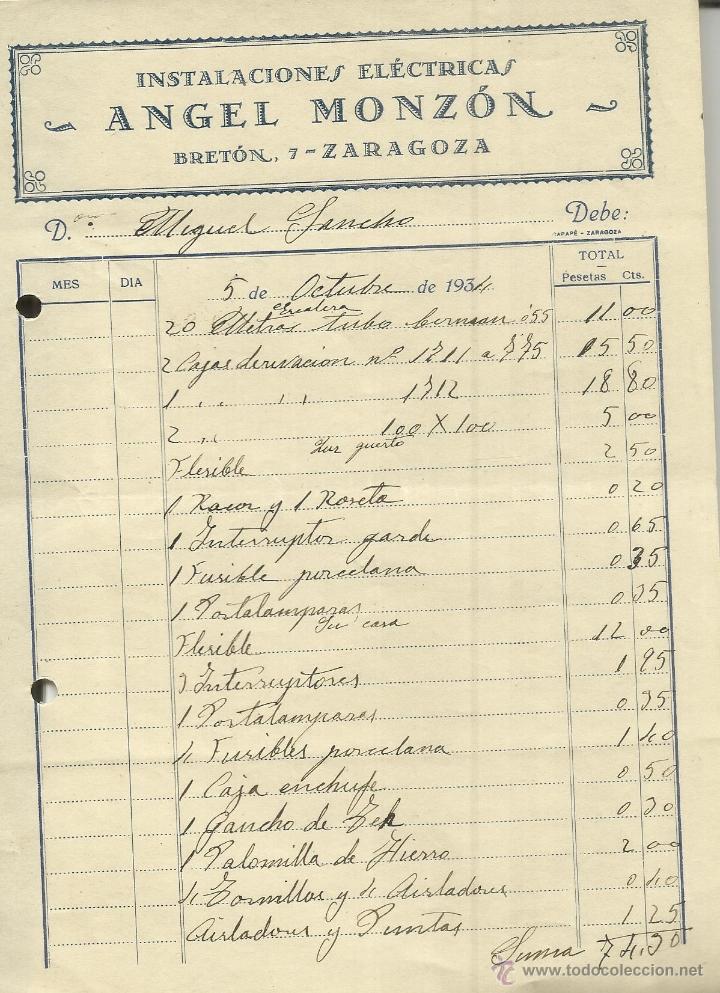 INSTALACIONES ELÉCTRICAS
ANGEL MONZÓN
BRETÓN, 7 - ZARAGOZA
D. Miguel Sancho Debe:
ZARAGOZA
MES DIA TOTAL
Pesetas Cts.
5 de Octubre de 1934
Escalera
20 Metros tubo 0'55 11 00
2 Cajas derivacion nº 1711 a 7'75 15 50
1 " " 1712 18 80
2 " 100 X 100 5 00
Luz
Flexible 2 50
1 Racor y 1 Roseta 0 20
1 Interruptor 0 65
1 Fusible porcelana 0 35
1 Portalamparas 0 35
Su casa
Flexible 12 00
3 Interruptores 1 95
1 Portalamparas 0 35
4 Fusibles porcelana 1 40
1 Caja enchufe 0 50
1 Gancho de 0 30
1 Palomilla de Hierro 2 00
4 Tornillos y 4 Aisladores 0 40
Aisladores y Puntas 1 25
Suma 74.50
todocoleccion.net